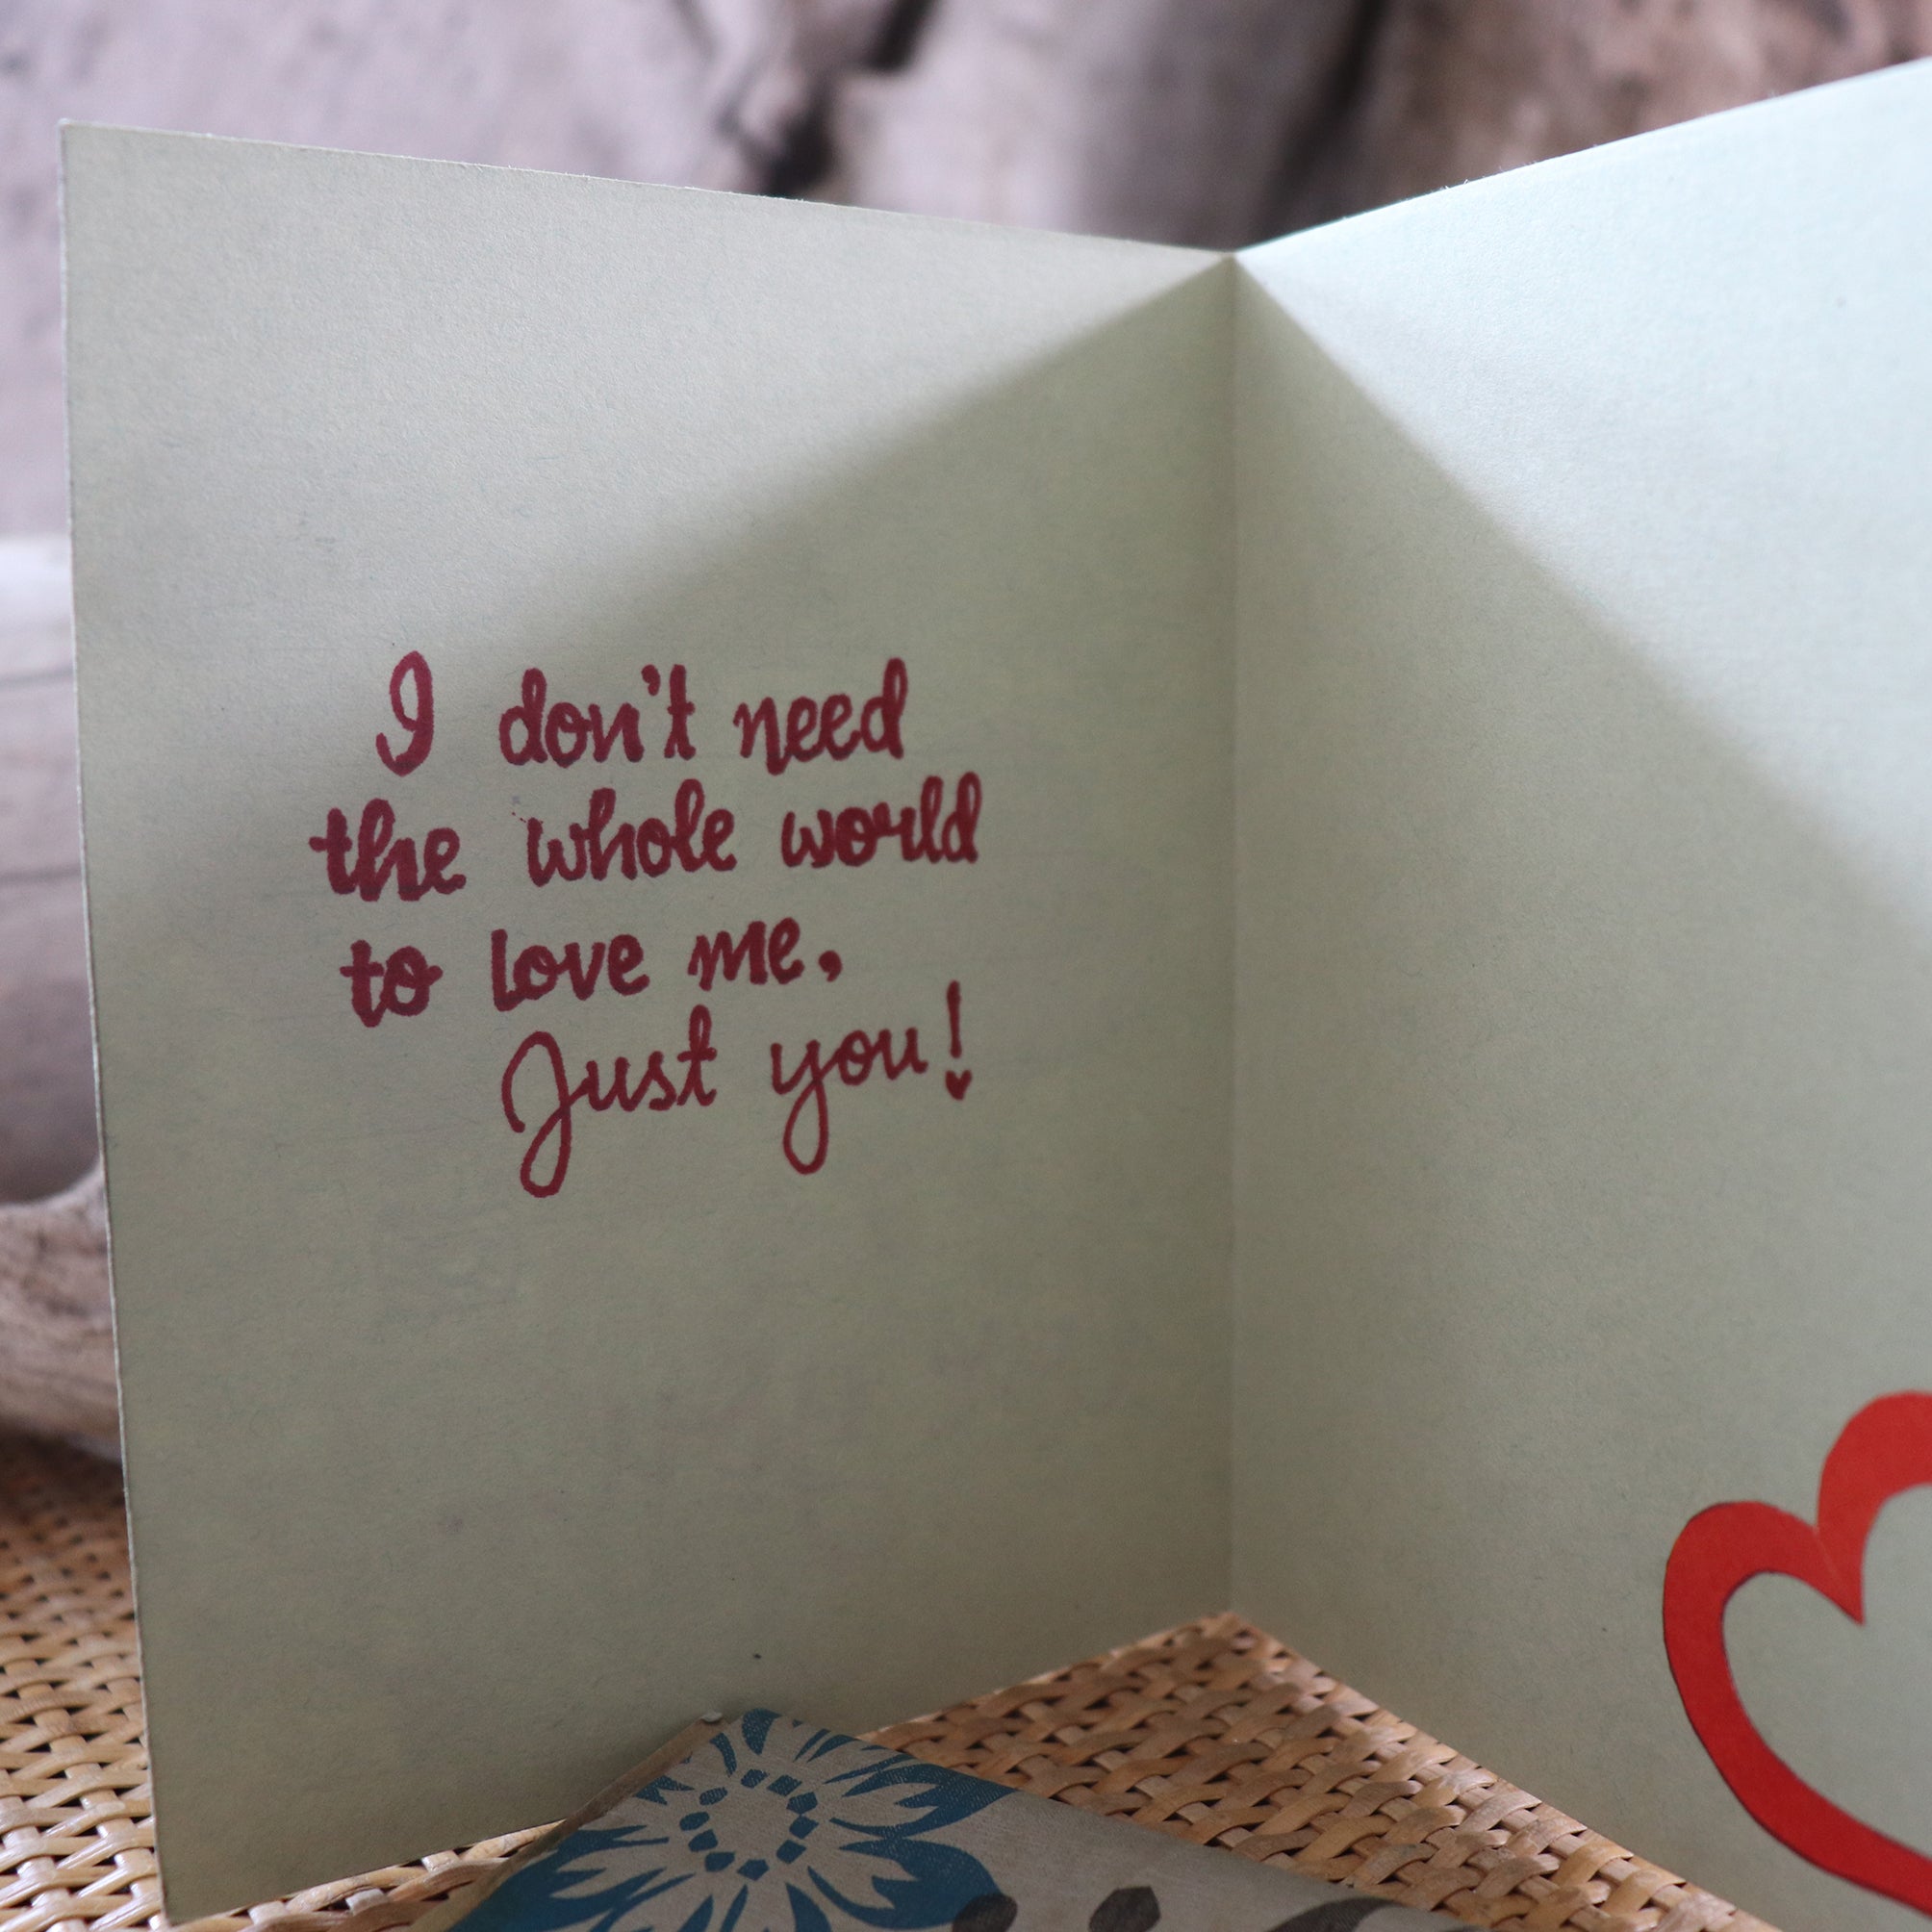 I don't need
the whole world
to love me,
Just you!